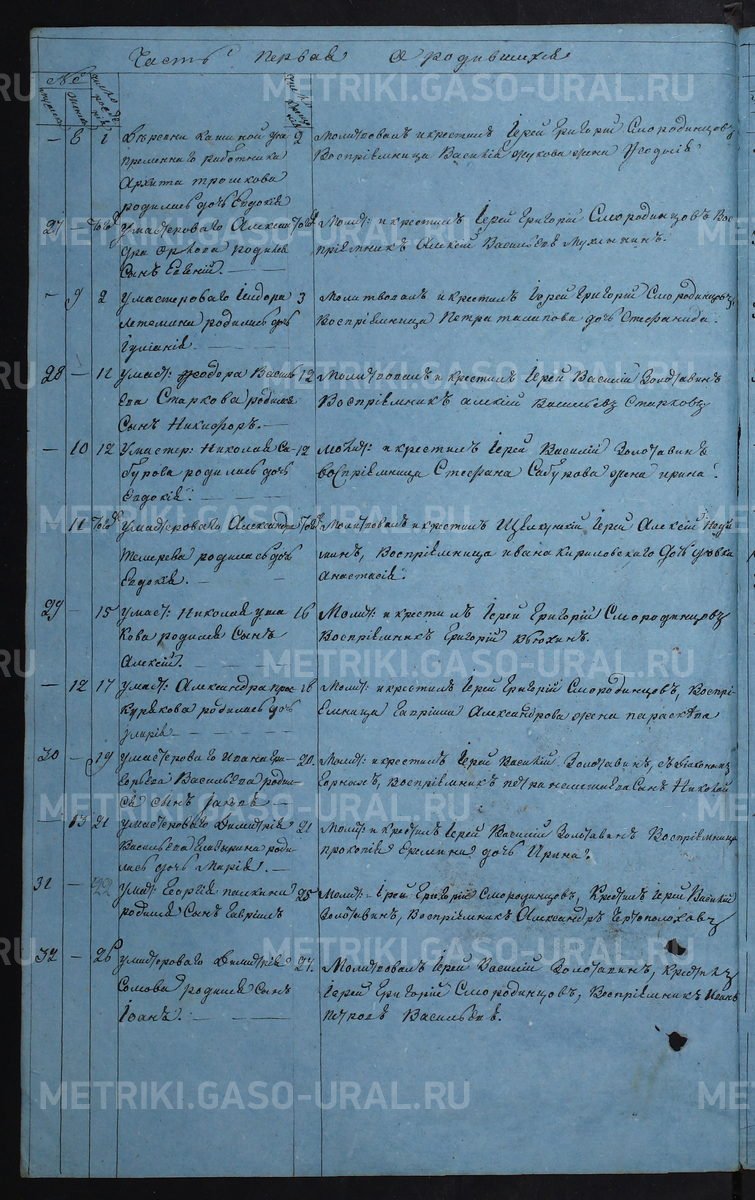 Часть первая О родившихся
№
– 8 1 Деревни Кашиной у временнаго работника Архипа Трошкова родилась дочь Евдокия 2 Молитвовалъ и крестилъ Іерей Григорій Смородинцовъ
Воспріемница Василія Жукова жена Ѳеодосія
27 – Тогожъ У мастероваго Александра Орлова родился сынъ Евгеній. Тогожъ Молит: и крестилъ Іерей Григорій Смородинцовъ Вос-
пріемникъ Алексій Васильевъ Мухинъ.
– 9 2 У мастероваго Исидора родилась дочь Іуліанія. 3 Молитвовалъ и крестилъ Іерей Григорій Смородинцовъ,
Воспріемница Петра дочь Стефанида.
28 – 11 У маст: Ѳеодора Василь
ева Старкова родился
сынъ Никифоръ. 12 Молитвовалъ и крестилъ Іерей Василій Золотавинъ
Воспріемникъ Алексій Васильевъ Старковъ
– 10 12 У мастер: Николая Са-
бурова родилась дочь
Евдокія. 12 Молит: и крестилъ Іерей Василій Золотавинъ
воспріемница Стефана Сабурова жена Ирина.
– 11 Тогожъ У мастероваго Александра
родилась дочь
Евдокія. Тогожъ Молитвовалъ и крестилъ Іерей Алексій
Воспріемница Ивана Кириловскаго дочь девка
Анастасія.
29 – 15 У маст: Николая Уша
кова родился сынъ
Алексій. 16 Молит: и крестилъ Іерей Григорій Смородинцовъ
Воспріемникъ Григорій Вьюхинъ.
– 12 17 У маст: Александра Прос
курякова родилась дочь
18 Молит: и крестилъ Іерей Григорій Смородинцовъ, Воспрі-
емница Гавріила Александрова жена Параскева
30 – 19 У мастероваго Ивана Гри-
горьева Васильева родил-
ся сынъ Іаковъ 20 Молит: и крестилъ Іерей Василій Золотавинъ, съ діакономъ
Воспріемникъ Петра сынъ Николай
– 13 21 У мастероваго Димитрія
Васильева родилась дочь Марія. 21 Молит: и крестилъ Іерей Василій Золотавинъ Воспріемница
Прокопія Еремина дочь Ирина.
31 – 22 У маст: Георгія Палкина
родился сынъ Гавріилъ 25 Молит: Іерей Григорій Смородинцовъ, Крестилъ Іерей Василій
Золотавинъ, Воспріемникъ Александръ Чертополоховъ
32 – 26 У мастероваго Димитрія
Сомова родился сынъ
Іоанъ. 27 Молитвовалъ Іерей Василій Золотавинъ, Крестилъ
Іерей Григорій Смородинцовъ, Воспріемникъ Иванъ
Петровъ Васильевъ.
METRIKI.GASO-URAL.RU